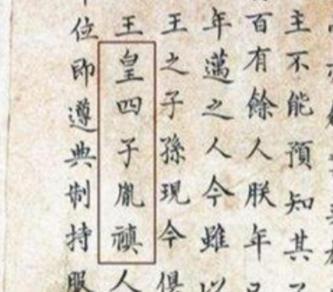 主不能預知其
百有餘人朕年
年邁之人今雖以
王之子孫現今俱
王皇四子胤禛人
位即遵典制持服